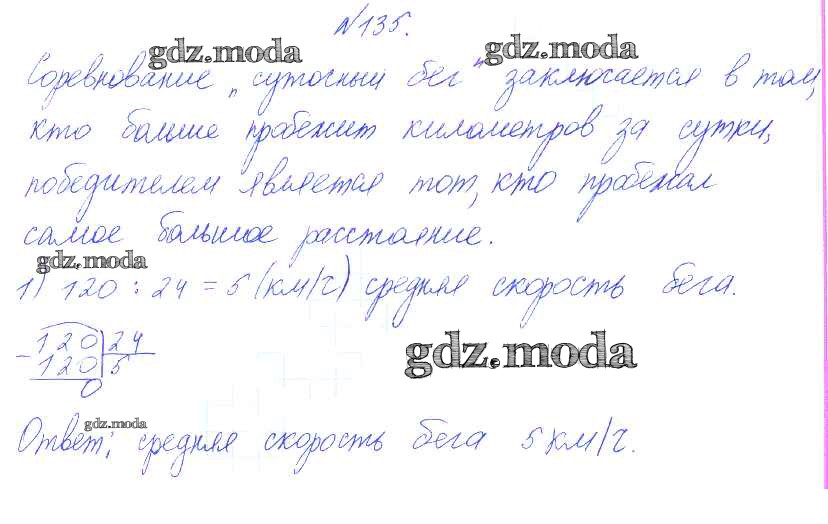 №135.
gdz.moda gdz.moda
Соревнование „суточный бег" заключается в том,
кто больше пробежит километров за сутки,
победителем является тот, кто пробежал
самое большое расстояние.
gdz.moda
1) 120 : 24 = 5 (км/ч) средняя скорость бега.
120 24
- 120 5
0
gdz.moda
gdz.moda
Ответ: средняя скорость бега 5 км/ч.